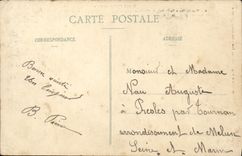 CARTE POSTALE
CORRESPONDANCE
ADRESSE
Bonne santé
B.
Monsieur et Madame
Nau Auguste
à Presles par Tournan
arrondissement de Melun
Seine et Marne